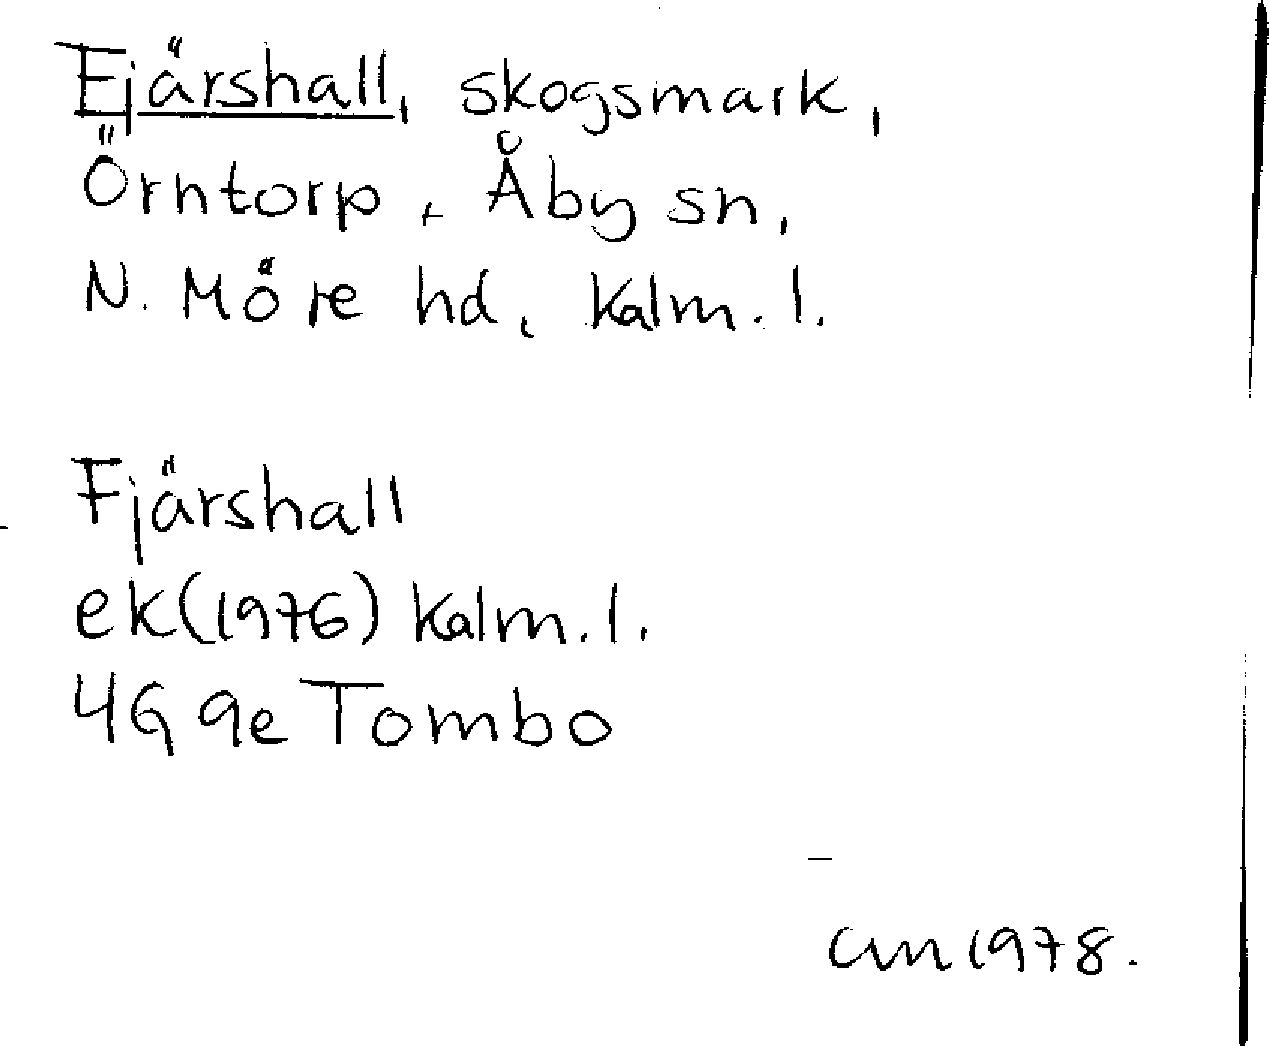 Fjärshall, skogsmark,
Örntorp, Åby sn,
N. Möre hd, Kalm. l.
Fjärshall
ek(1976) Kalm. l.
4G 9e Tombo
CM 1978.